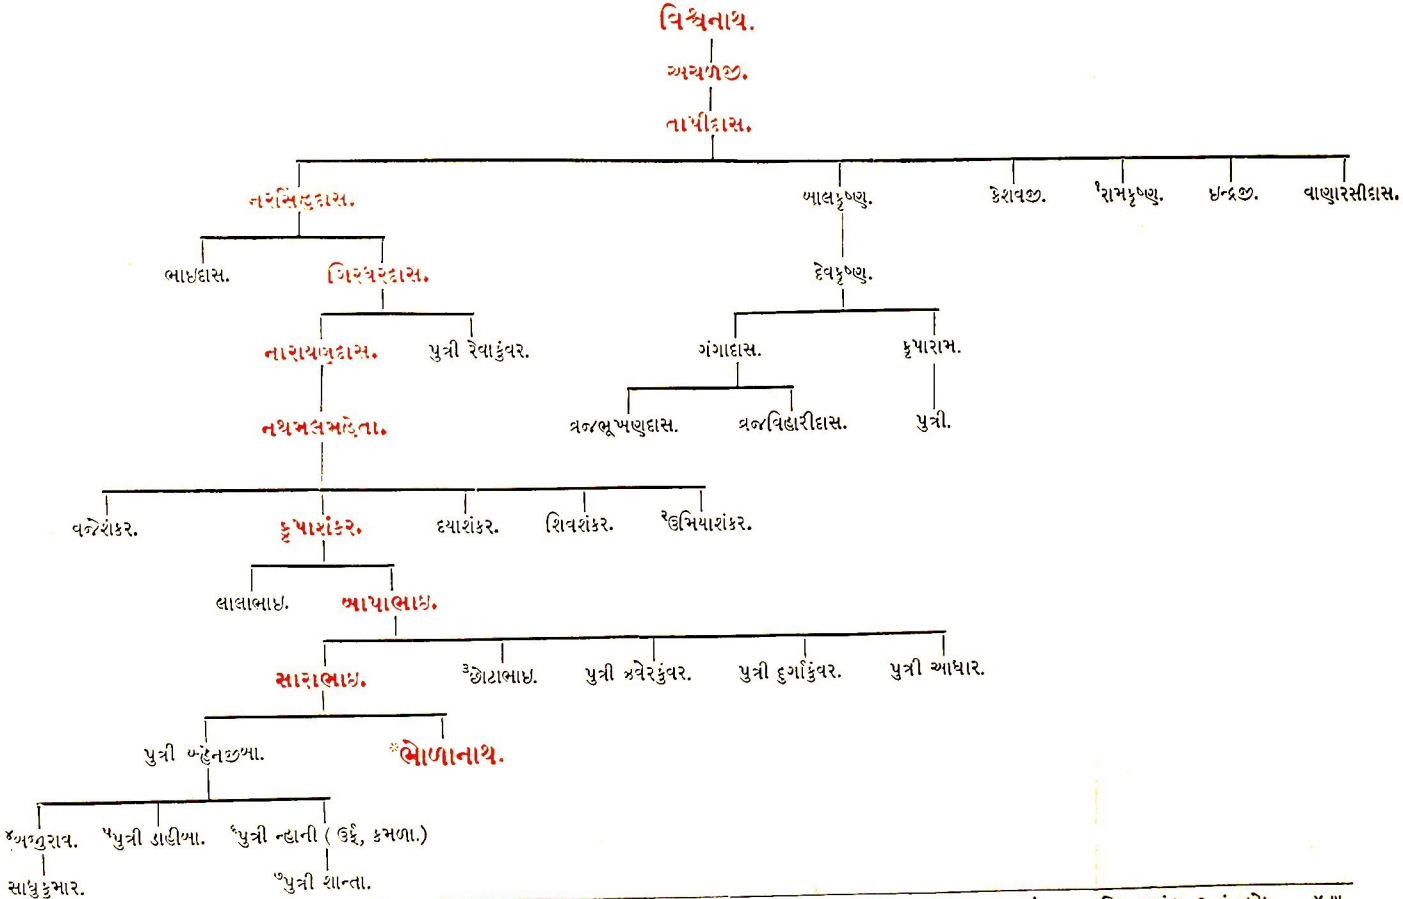 વિશ્વનાથ.
અચળજી.
તાપીદાસ.
નરસિંહદાસ. બાલકૃષ્ણ. કેશવજી. ૧રામકૃષ્ણ. ઇન્દ્રજી. વાણારસીદાસ.
ભાઇદાસ. ગિરધરદાસ. દેવકૃષ્ણ.
નારાયણદાસ. પુત્રી રેવાકુંવર. ગંગાદાસ. કૃપારામ.
નથમલમહેતા. વ્રજભૂખણદાસ. વ્રજવિહારીદાસ. પુત્રી.
વજેશંકર. કૃપાશંકર. દયાશંકર. શિવશંકર. ૨ઉમિયાશંકર.
લાલાભાઇ. બાપાભાઇ.
સારાભાઇ. ૩છોટાભાઇ. પુત્રી ઝવેરકુંવર. પુત્રી દુર્ગાકુંવર. પુત્રી આધાર.
પુત્રી બ્હેનજીબા. *ભોળાનાથ.
૪અજીરાવ. ૫પુત્રી ડાહીબા. ૬પુત્રી ન્હાની ( ઉર્ફે, કમળા.)
સાધુકુમાર. ૭પુત્રી શાન્તા.